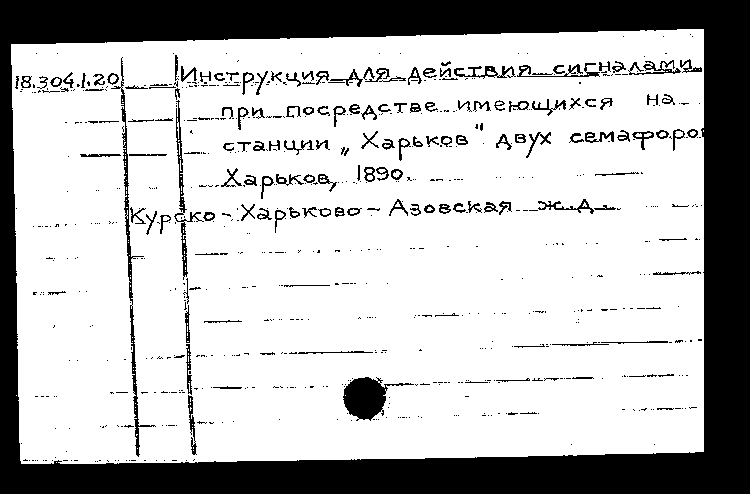 18.304.1.20 Инструкция для действия сигналами
при посредстве имеющихся на
станции „Харьков" двух семафоро
Харьков, 1890.
Курско-Харьково-Азовская ж.д.